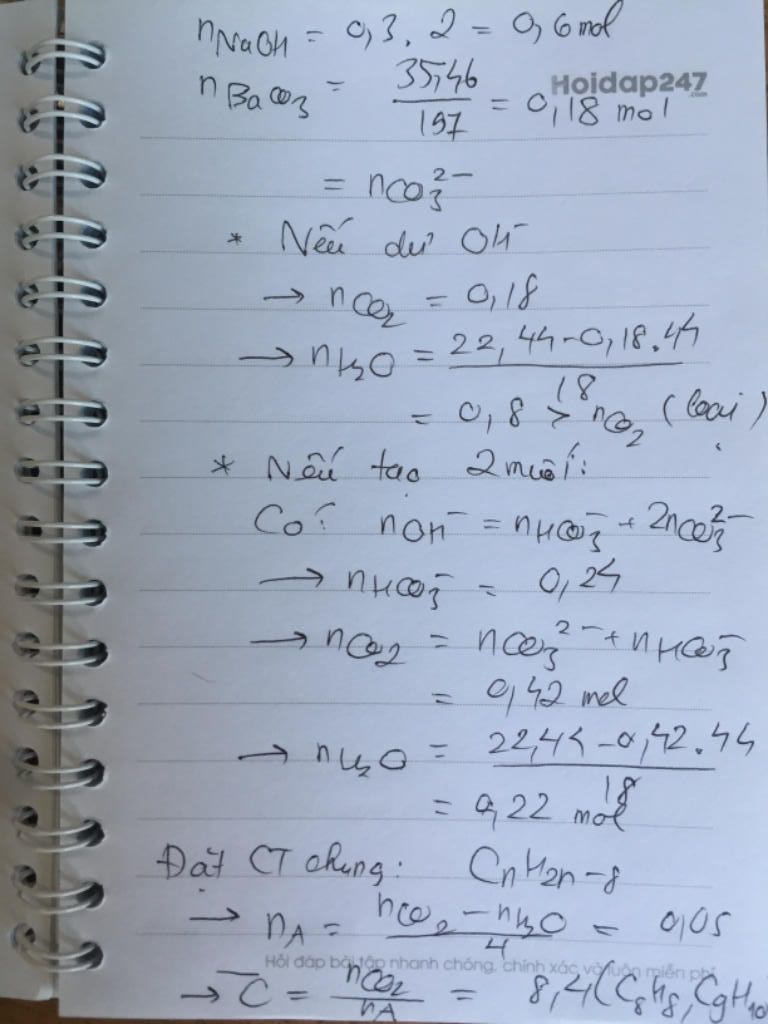 nNaOH = 0,3 . 2 = 0,6 mol
nBaCO3 = 35,46/197 = 0,18 mol
Hoidap247
.com
= nCO3^2-
* Nếu dư OH^-
→ nCO2 = 0,18
→ nH2O = (22,44 - 0,18.44)/18
= 0,8 > nCO2 (loại)
* Nếu tạo 2 muối:
Có: nOH^- = nHCO3^- + 2nCO3^2-
→ nHCO3^- = 0,24
→ nCO2 = nCO3^2- + nHCO3^-
= 0,42 mol
→ nH2O = (22,44 - 0,42.44)/18
= 0,22 mol
Đặt CT chung: CnH2n-8
→ nA = (nCO2 - nH2O)/4 = 0,05
Hỏi đáp bài tập nhanh chóng, chính xác và luôn miễn phí
→ C̅ = nCO2/nA = 8,4 (C8H8, C9H10